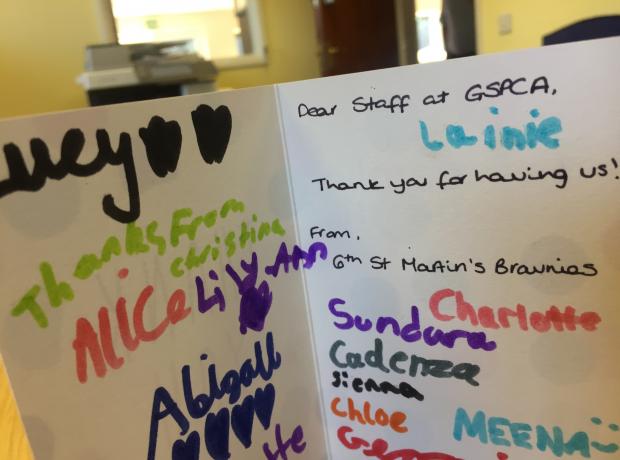 Lucy
Thanks From
Christina
Alice
Lily Ann
Abigail
Dear Staff at GSPCA,
Lainie
Thank you for having us!
From,
6th St Martin's Brownies
Charlotte
Sundara
Cadenza
Sienna
Chloe
MEENA